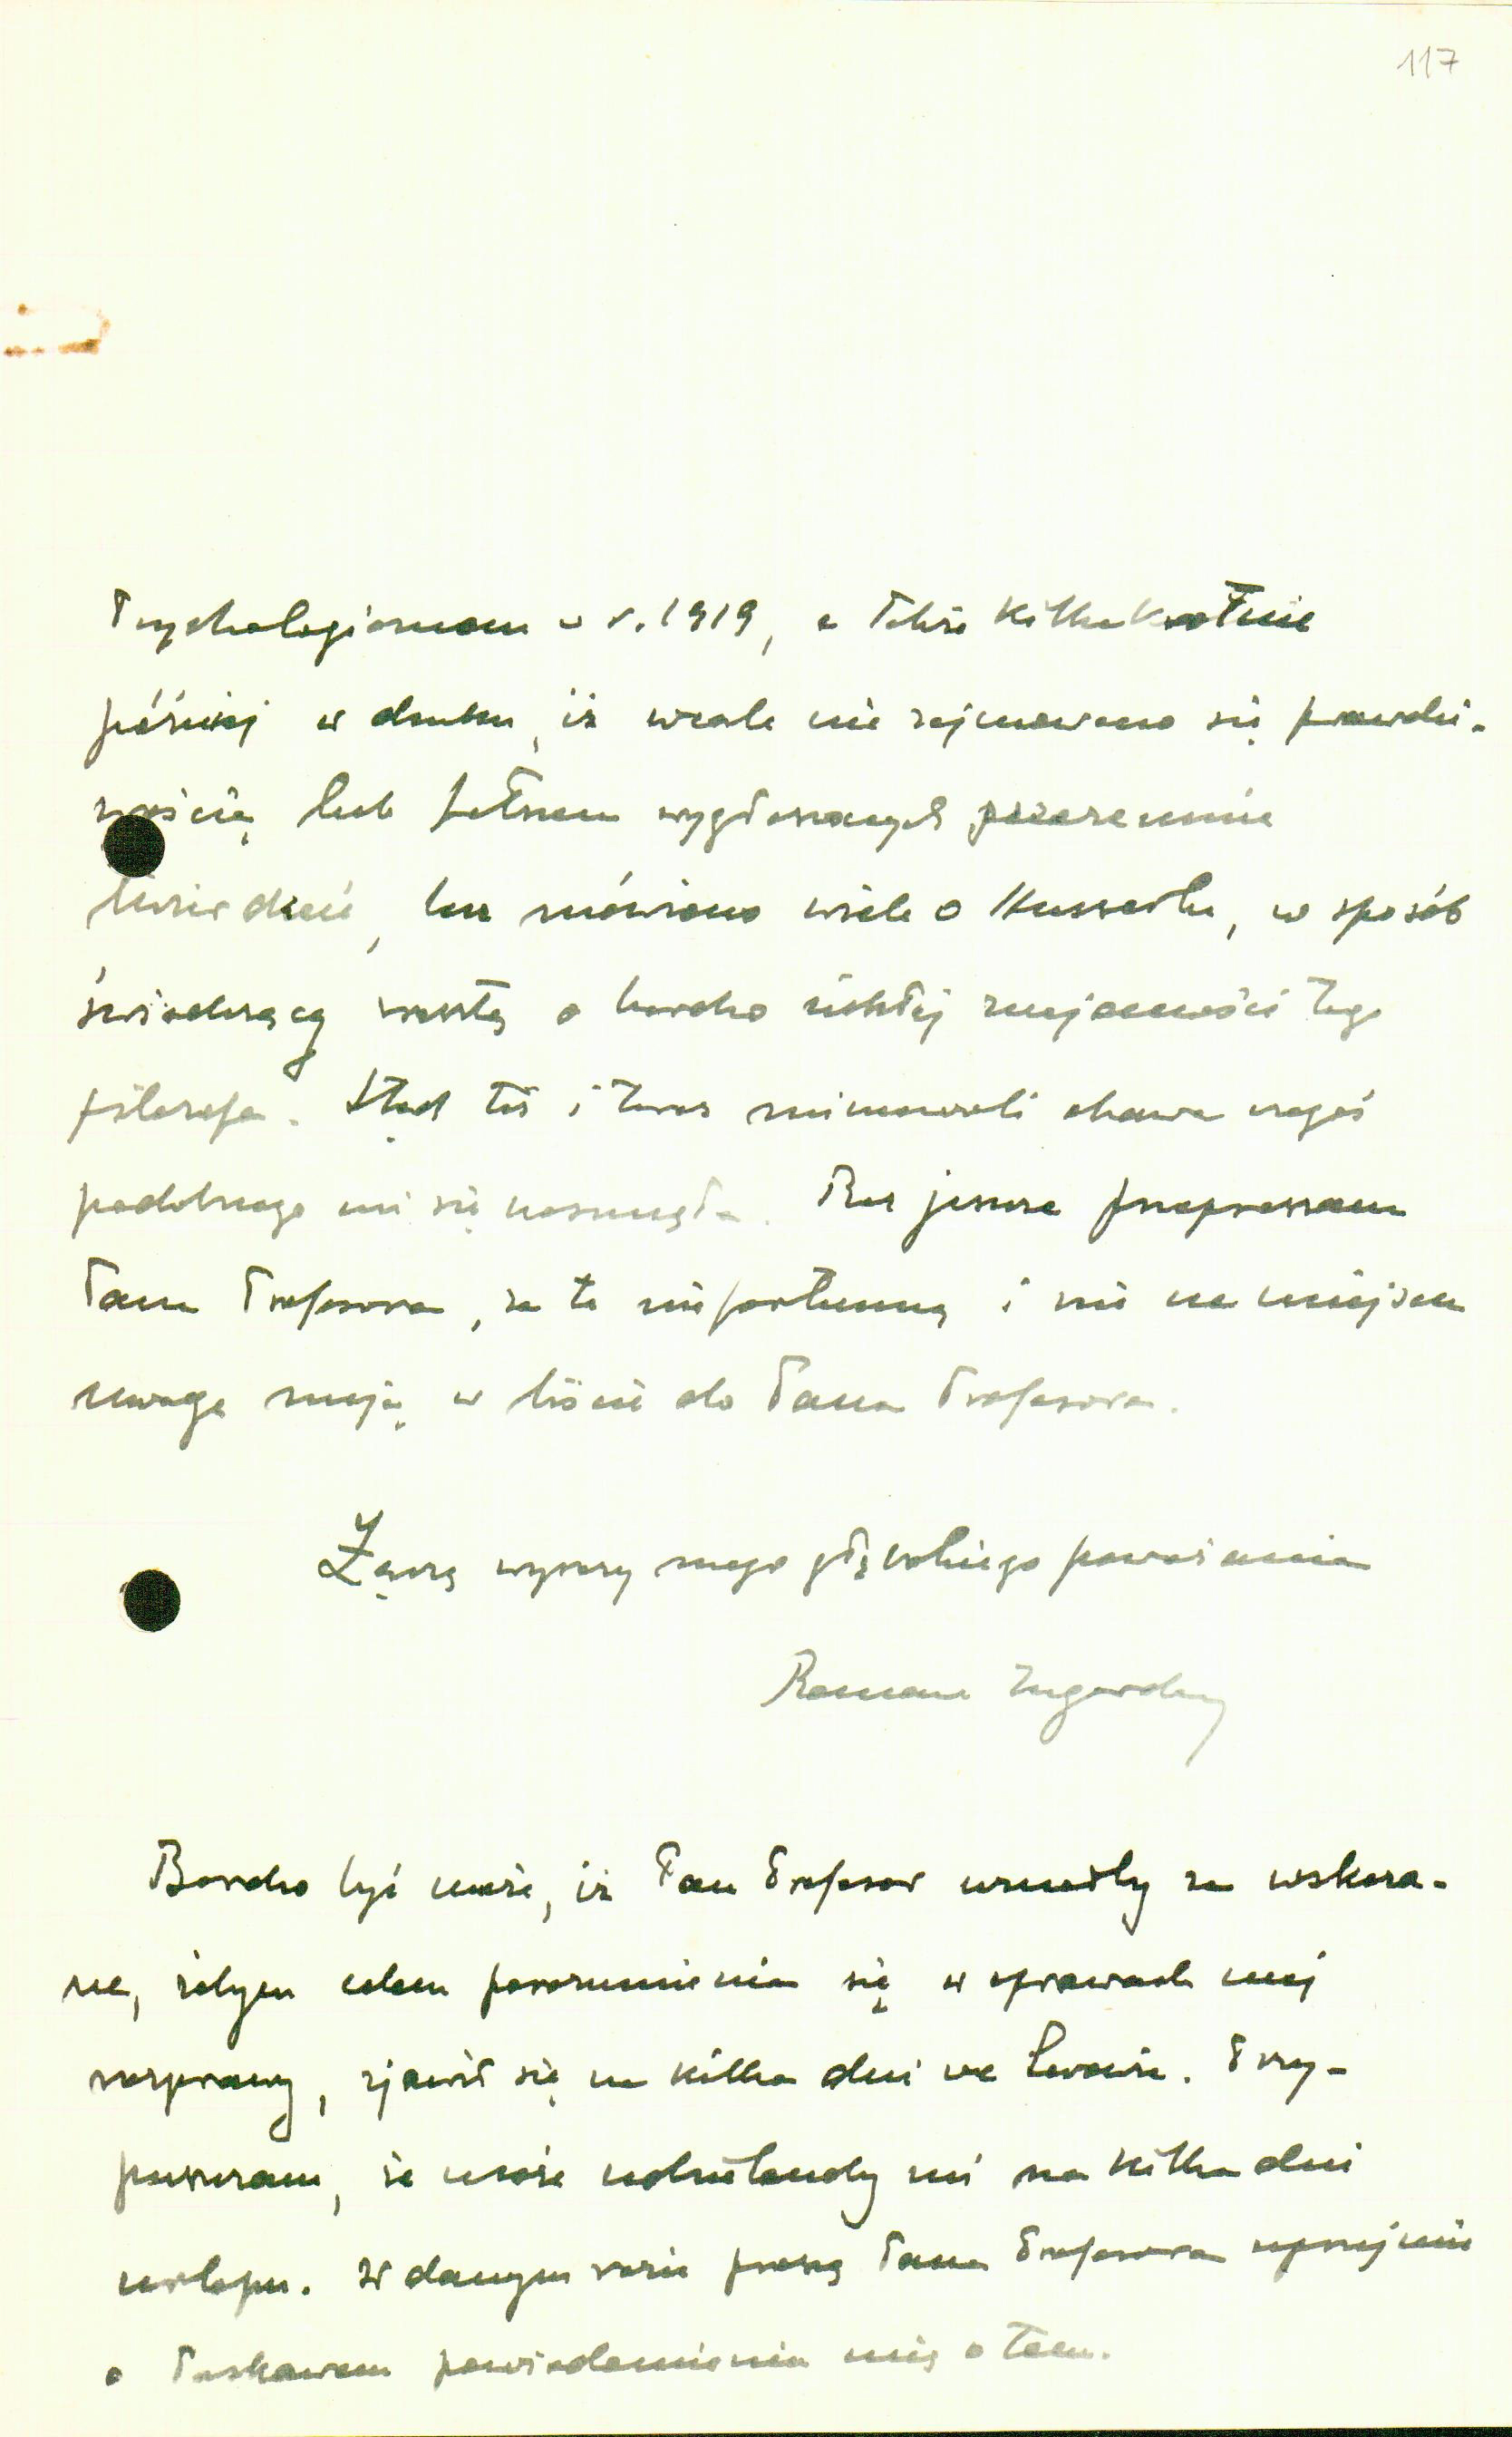 117
Psychologicznem w r. 1919, a także kilkakrotnie
później w druku, iż wcale nie zajmowano się prawdzi-
wością lub fałszem wygłoszonych przezemnie
twierdzeń, lecz mówiono wiele o Husserlu, w sposób
świadczący zresztą o bardzo nikłej znajomości tego
filozofa. Stąd też i teraz mimowoli obawa czegoś
podobnego mi się nasunęła. Raz jeszcze przepraszam
Pana Profesora, za tę niefortunną i nie na miejscu
uwagę moją w liście do Pana Profesora.
Łączę wyrazy mego głębokiego poważania
Roman Ingarden
Bardzo być może, iż Pan Profesor uznałby za wskaza-
ne, żebym celem porozumienia się w sprawach mej
rozprawy, zjawił się na kilka dni we Lwowie. Przy-
puszczam, że może udzielonoby mi na kilka dni
urlopu. W danym razie proszę Pana Profesora uprzejmie
o łaskawem powiadomienia mię o tem.